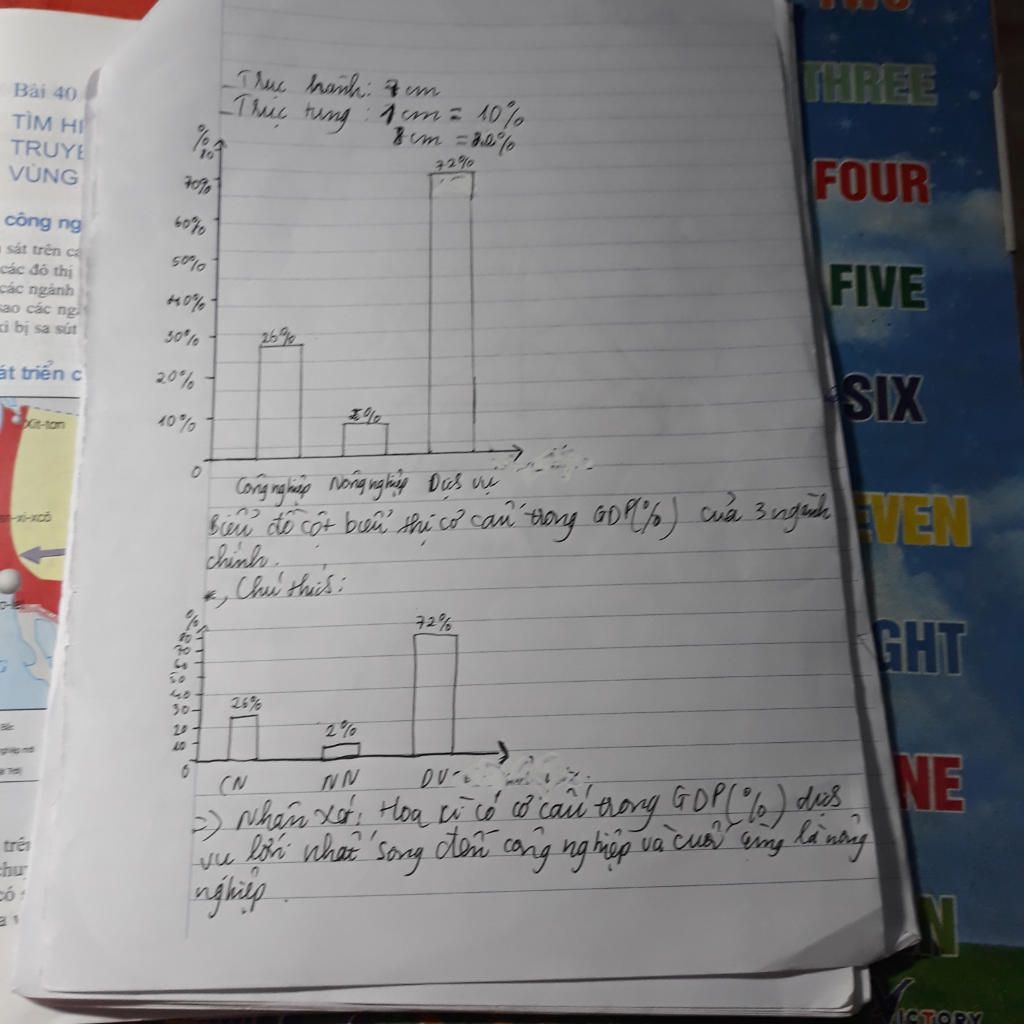 TWO
THREE
FOUR
FIVE
SIX
EVEN
GHT
NE
N
VICTORY
Bài 40
TÌM HI
TRUYỀ
VÙNG
công ng
sát trên
các đô thị
các ngành
sao các ng
kì bị sa sút
át triển c
Xit-tơn
trên
Thực hành: 7cm
Thực tung: 1cm = 10%
8cm =
%
80
70%
60%
50%
40%
30%
20%
10%
0
26%
72%
Công nghiệp Nông nghiệp Dịch vụ
Biểu đồ cột biểu thị cơ cấu trong GDP(%) của 3 ngành
chính.
*, Chú thích:
%
80
70
60
50
40
30
20
10
0
26%
2%
72%
CN NN DV
=> Nhận xét: Hoa kì có cơ cấu trong GDP(%) dịch
vụ lớn nhất song đến công nghiệp và cuối cùng là nông
nghiệp.